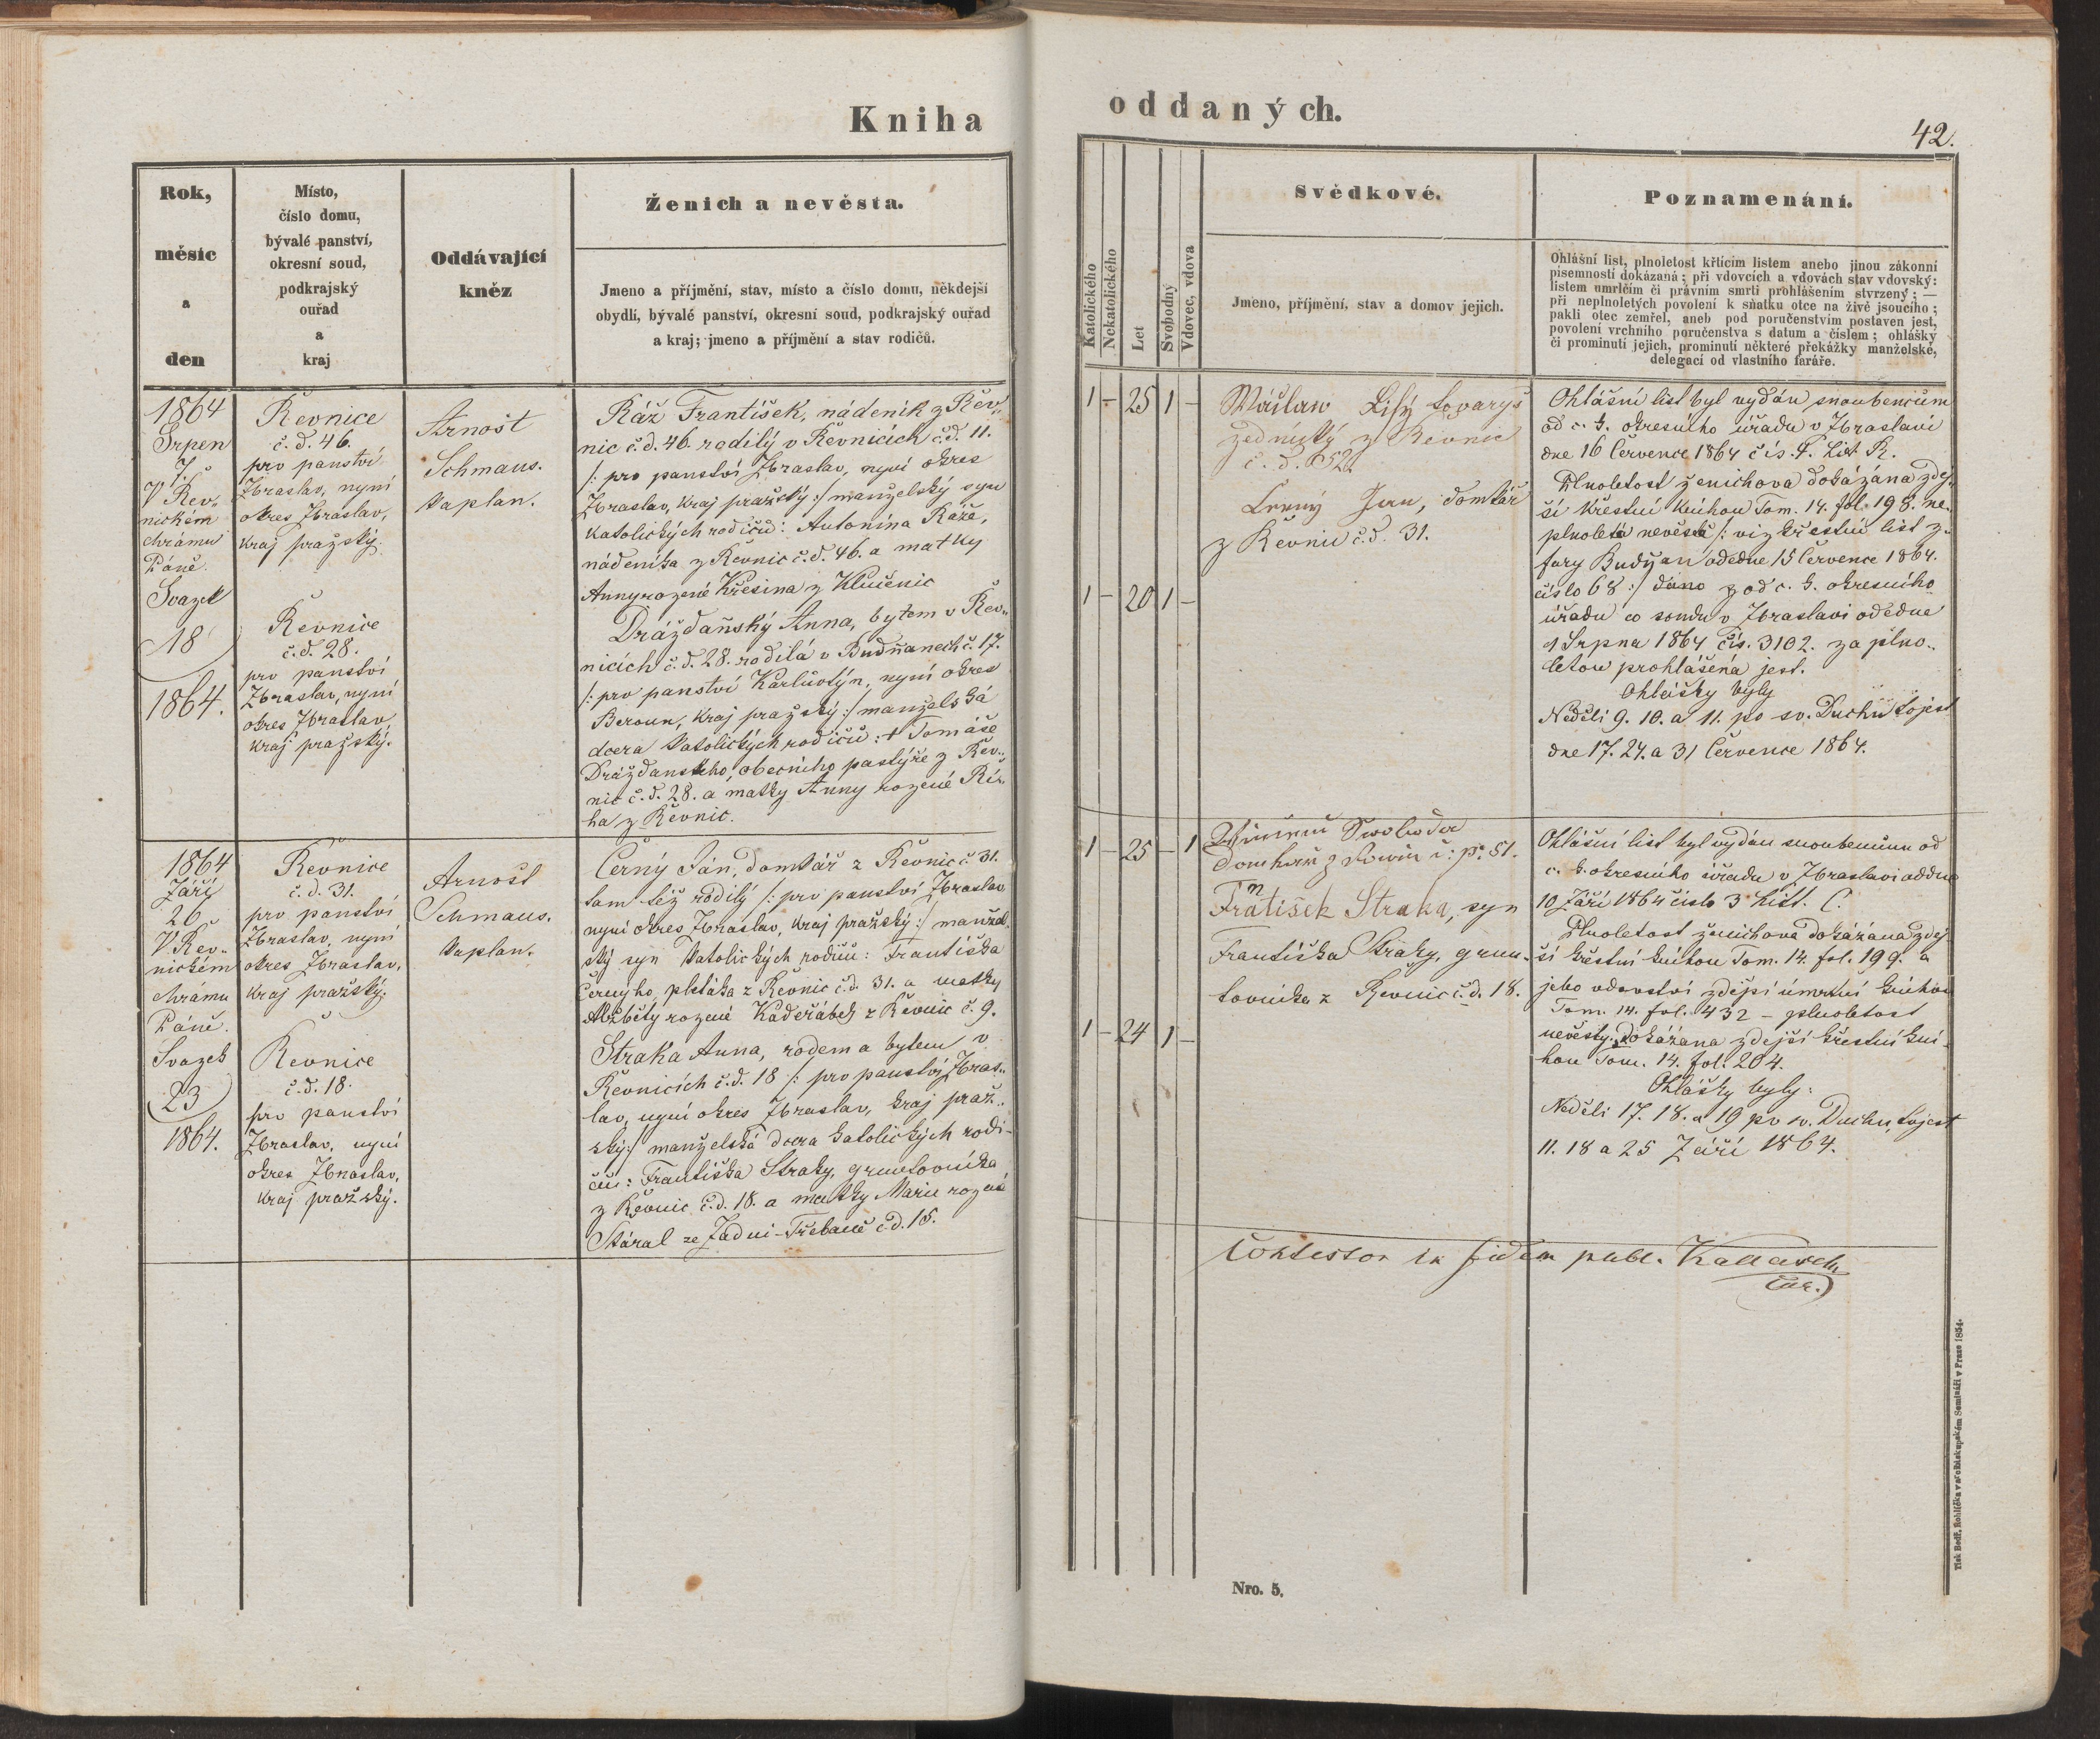 Kniha
Rok,
měsíc
a
den
Místo,
číslo domu,
bývalé panství,
okresní soud,
podkrajský
ouřad
a
kraj
Oddávající
kněz
Ženich a nevěsta.
Jmeno a příjmění, stav, místo a číslo domu, někdejší
obydlí, bývalé panství, okresní soud, podkrajský ouřad
a kraj; jmeno a příjmění a stav rodičů.
1864
Srpen
7.
V Řev„
nickém
chrámu
Páně.
Svazek
18
1864.
Řevnice
č.d. 46.
pro panství
Zbraslav, nyní
okres Zbraslav,
kraj pražský.
Řevnice
č.d. 28.
pro panství
Zbraslav, nyní
okres Zbraslav,
kraj pražský.
Arnošt
Schmaus.
kaplan.
Ráž František, nádeník z Řev„
nic č.d. 46. rodilý v Řevnicích č.d. 11.
/: pro panství Zbraslav, nyní okres
Zbraslav, kraj pražský :/ manželský syn
katolických rodičů: Antonína Ráže,
nádeníka z Řevnic č.d. 46. a matky
Anny rozené Křesina z Klučenic
Drážďanský Anna, bytem v Řev„
nicích č.d. 28. rodilá v Budňanech č. 17.
/: pro panství Karlůvtýn, nyní okres
Beroun, kraj pražský :/ manželská
dcera katolických rodičů: † Tomáše
Drážďanského, obecního pastýře z Řev„
nic č.d. 28. a matky Anny rozené Ří„
ha z Řevnic.
1864
Září
26.
V Řev„
nickém
chrámu
Páně.
Svazek
23
1864.
Řevnice
č.d. 31.
pro panství
Zbraslav, nyní
okres Zbraslav,
kraj pražský.
Řevnice
č.d. 18.
pro panství
Zbraslav, nyní
okres Zbraslav,
kraj pražský.
Arnošt
Schmaus.
kaplan.
Černý Ján, domkář z Řevnic č 31.
tam též rodilý /: pro panství Zbraslav
nyní okres Zbraslav, kraj pražský :/ manžel„
ský syn katolických rodičů: Františka
Černýho, pleták​a z Řevnic č.d. 31. a matky
Alžběty rozené Kadeřábek z Řevnic č. 9.
Straka Anna, rodem a bytem v
Řevnicích č.d. 18 /: pro panství Zbras„
lav, nyní okres Zbraslav, kraj praž„
ský :/ manželská dcera katolických rodi-
čů: Františka Straky, gruntovníka
z Řevnic č.d. 18. a matky Marie rozené
Stáral ze Zadní-Třebaně č.d. 15.
oddaných.
42.
Katolického
Nekatolického
Let
Svobodný
Vdovec, vdova
Svědkové.
Jmeno, příjmění, stav a domov jejich.
Poznamenání.
Ohlášní list, plnoletost křtícím listem anebo jinou zákonní
písemností dokázaná; při vdovcích a vdovách stav vdovský:
listem umrlčím či právním smrti prohlášením stvrzený; —
při neplnoletých povolení k sňatku otce na živě jsoucího;
pakli otec zemřel, aneb pod poručenstvím postaven jest,
povolení vrchního poručenstva s datum a číslem; ohlášky
či prominutí jejich, prominutí některé překážky manželské,
delegací od vlastního faráře.
1 – 25 1 –
1 – 20 1 –
Wáclaw Lisý tovaryš
zednický z Řevnic
č.d. 52.
Černý Jan, domkář
z Řevnic č.d. 31.
Ohlášní list byl vydán snoubencům
od c. k. okresního úřadu v Zbraslavi
dne 16 Července 1864 čís. 7. Lit. R.
Plnoletost ženichova dokázána zdej„
ší křestní knihou Tom. 14. fol. 198. ne„
plnoletá nevěsta /: viz křestní list z
fary Budňan odedne 15 Července 1864.
číslo 68 :/ dáno z od c. k. okresního
úřadu co soudu v Zbraslavi odedne
1 Srpna 1864 čís. 3102. za plno„
letou prohlášena jest.
Ohlášky byly
Neděli 9. 10. a 11. po sv. Duchu tojest
dne 17. 24. a 31 Července 1864.
1 – 25 – 1
1 – 24 1 –
Swoboda
51.
František Straka, syn
Františka Straky, grun-
tovníka z Řevnic č.d. 18.
Ohlášní list byl vydán snoubencům od
c. k. okresního úřadu v Zbraslavi oddne
10 Září 1864 číslo 3 Litt. C.
Plnoletost ženichova dokázána zdej-
ší křestní knihou Tom. 14. fol. 199. a
jeho vdovství zdejší úmrtní knihou
Tom. 14. fol. 432 – plnoletost
nevěsty dokázána zdejší křestní kni-
hou Tom. 14. fol. 204.
Ohlášky byly:
Neděli 17. 18. a 19 po sv. Duchu, tojest
11. 18 a 25 Září 1864.
in fidem publ.
Nro. 5.
Tisk Bedř. Rohlíčka v arcibiskupském Semináři v Praze 1854.